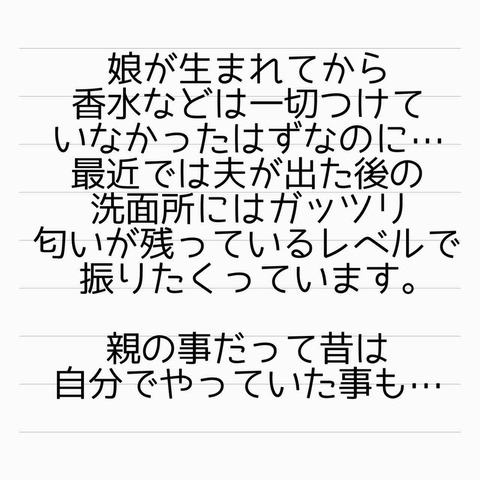 娘が生まれてから
香水などは一切つけて
いなかったはずなのに…
最近では夫が出た後の
洗面所にはガッツリ
匂いが残っているレベルで
振りたくっています。
親の事だって昔は
自分でやっていた事も…